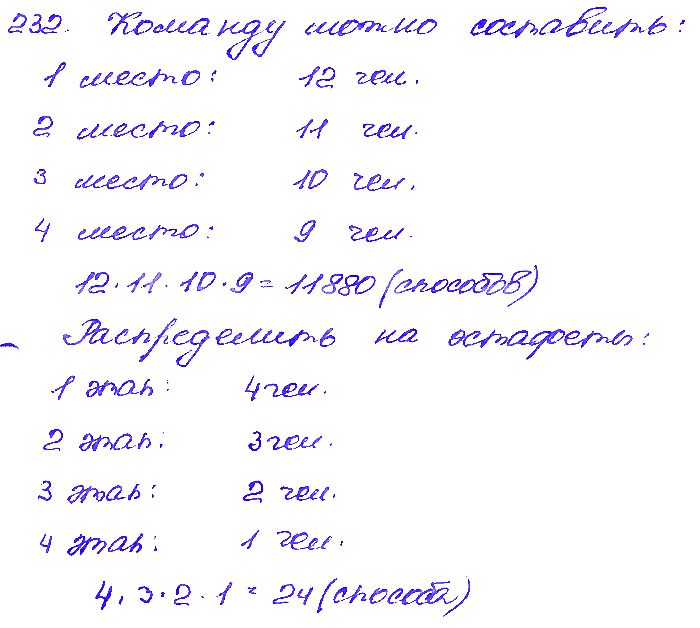 232. Команду можно составить:
1 место: 12 чел.
2 место: 11 чел.
3 место: 10 чел.
4 место: 9 чел.
12·11·10·9=11880 (способов)
– Распределить на эстафеты:
1 этап: 4 чел.
2 этап: 3 чел.
3 этап: 2 чел.
4 этап: 1 чел.
4·3·2·1=24 (способа)